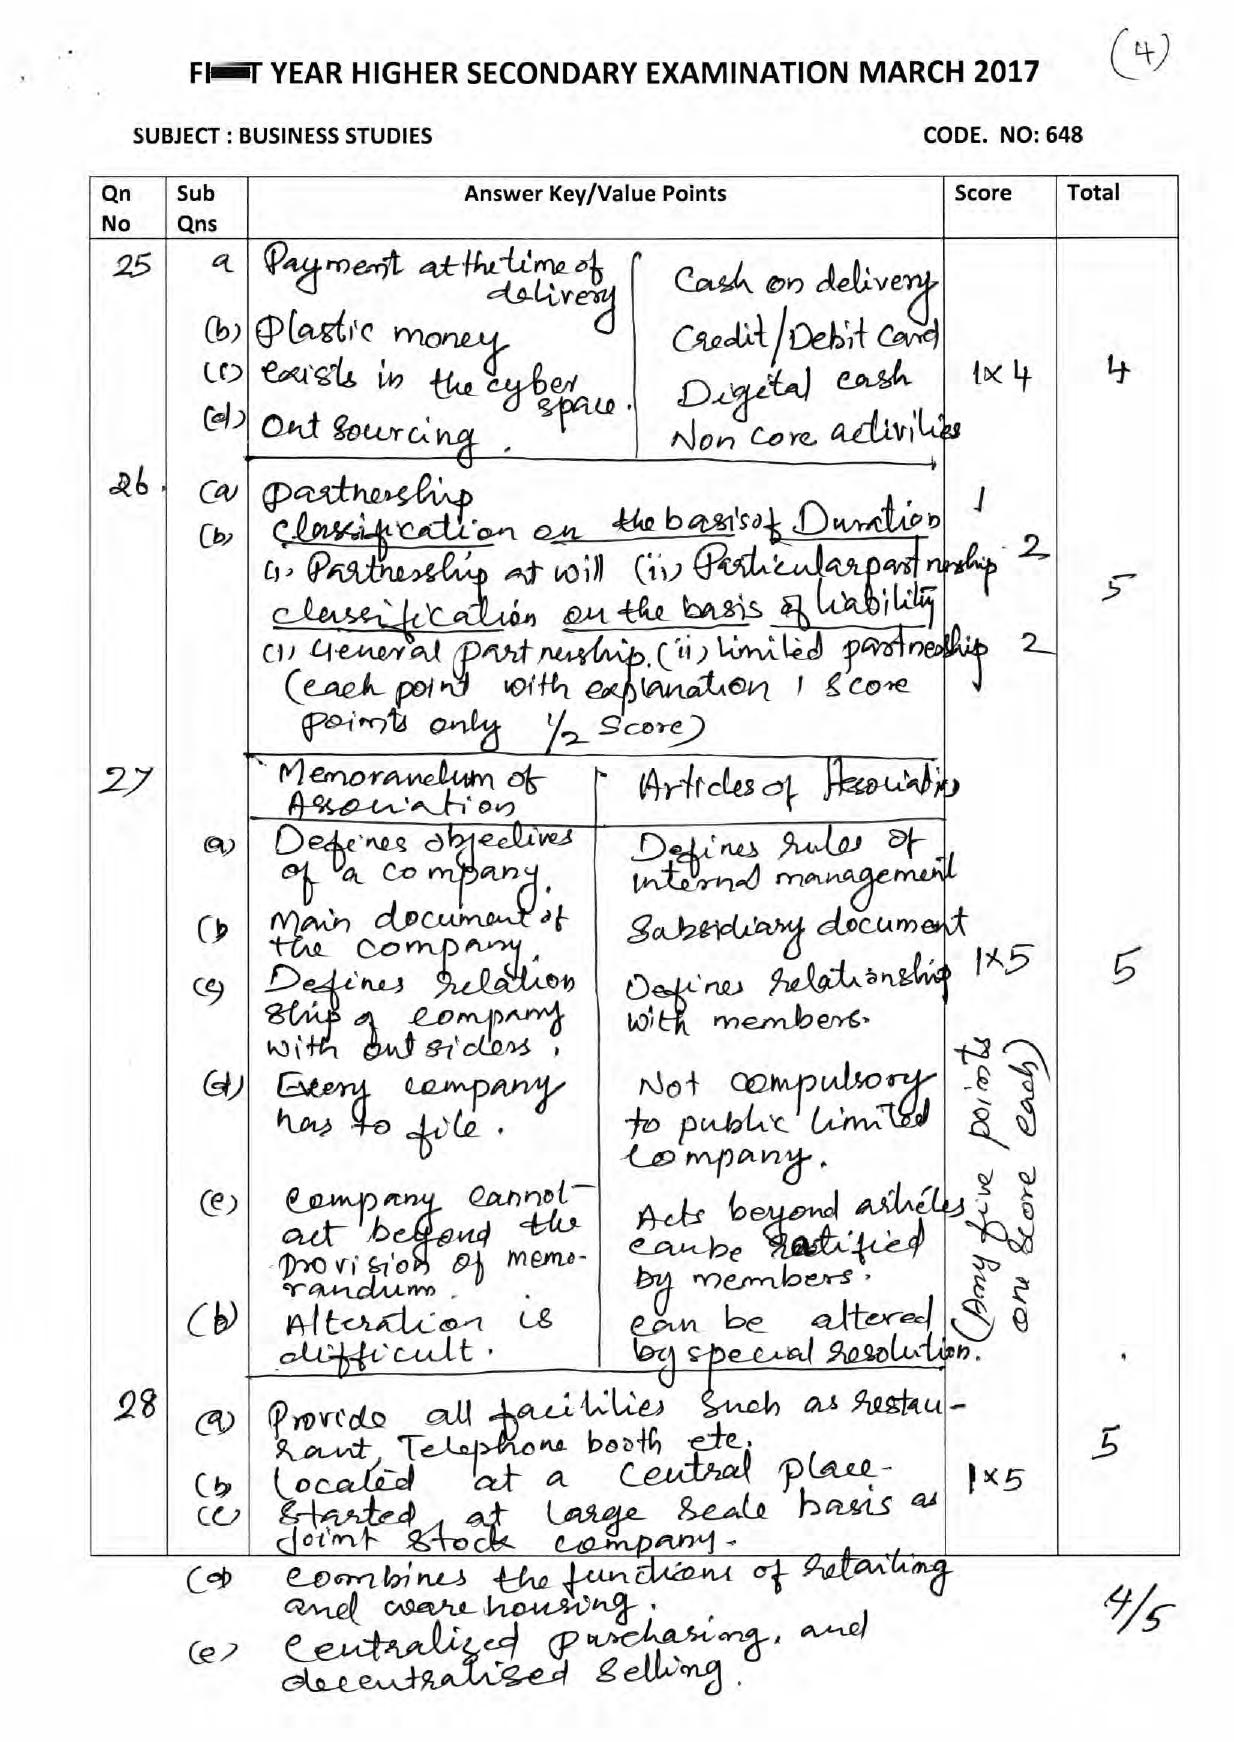 (4)
FI T YEAR HIGHER SECONDARY EXAMINATION MARCH 2017
SUBJECT : BUSINESS STUDIES CODE. NO: 648
Qn No Sub Qns Answer Key/Value Points Score Total
25 a Payment at the time of delivery Cash on delivery
(b) Plastic money Credit/Debit Card
(c) exists in the cyber space. Digital cash 1x4 4
(d) Out sourcing. Non core activities
26. (a) Partnership 1
(b) Classification on the basis of Duration
(i) Partnership at will (ii) Particular partnership 2
5
classification on the basis of liability
(i) General partnership. (ii) limited partnership 2
(each point with explanation 1 score
points only 1/2 score)
27 Memorandum of Association Articles of Association
(a) Defines objectives Defines rules of
of a company. internal management
(b Main document of Subsidiary document
the company.
(c) Defines relation Defines relationship 1x5 5
ship of company with members.
with out siders.
(d) Every company Not compulsory
has to file. to public limited
company.
(e) Company cannot Acts beyond articles
act beyond the can be ratified
provision of memo- by members.
randum.
(b) Alteration is can be altered
difficult. by special resolution.
(Any five points
one score each)
28 (a) Provide all facilities such as restau-
rant, Telephone booth etc. 5
(b) Located at a central place- 1x5
(c) Started at large scale basis as
Joint stock company-
(d) combines the functions of retailing
and ware housing.
4/5
(e) Centralized purchasing, and
decentralised selling.